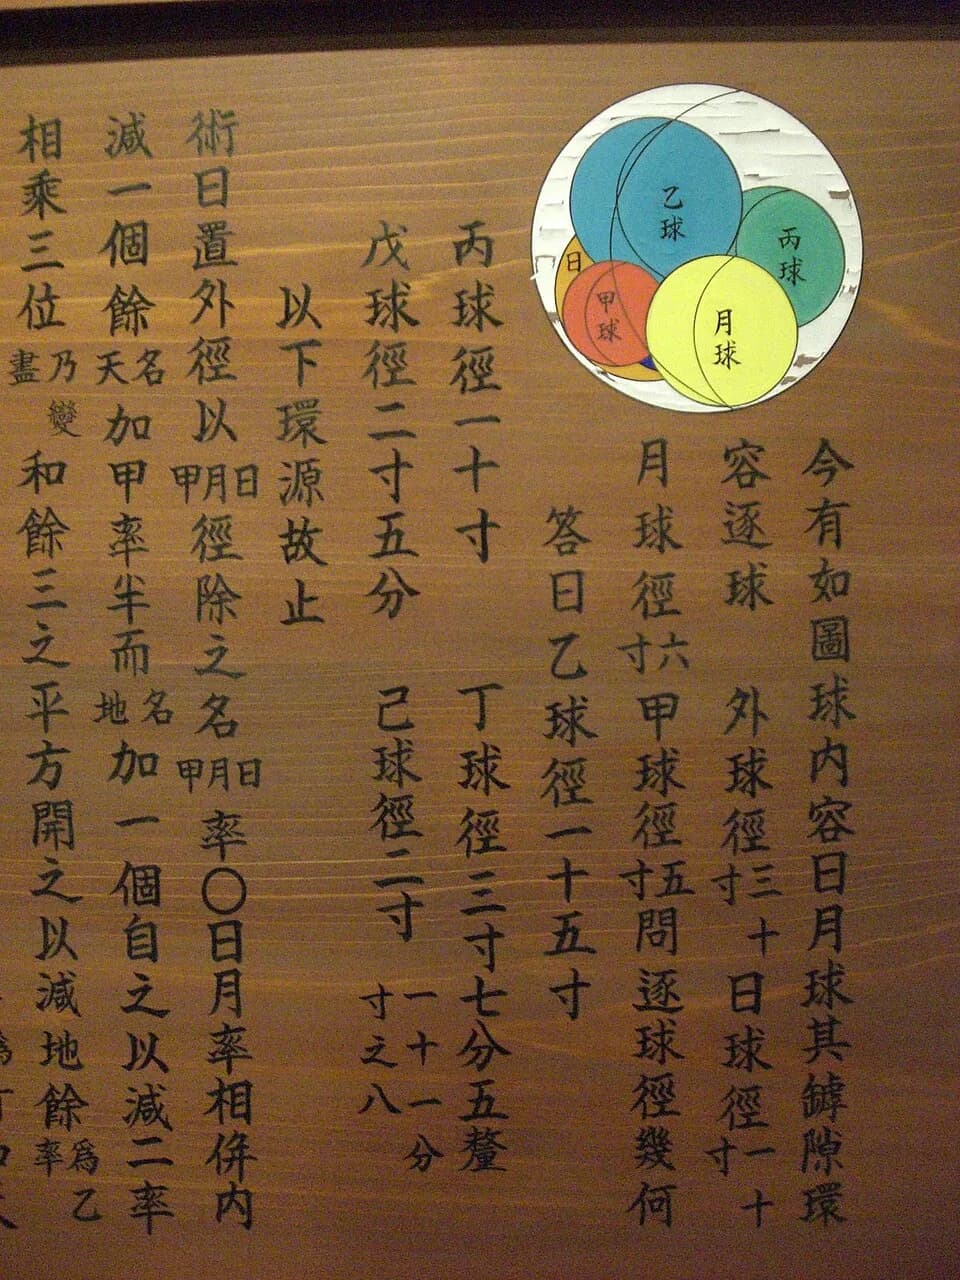 乙球
丙球
日
甲球
月球
今有如圖球内容日月球其罅隙環
容逐球　外球徑三十寸日球徑一十寸
月球徑六寸甲球徑五寸問逐球徑幾何
答曰乙球徑一十五寸
丙球徑一十寸　丁球徑三寸七分五釐
戊球徑二寸五分　己球徑二寸一十一分寸之八
以下環源故止
術曰置外徑以日月甲徑除之名日月甲率〇日月率相併内
減一個餘名天加甲率半而名地加一個自之以減二率
相乘三位乃盡變和餘三之平方開之以減地餘爲乙率